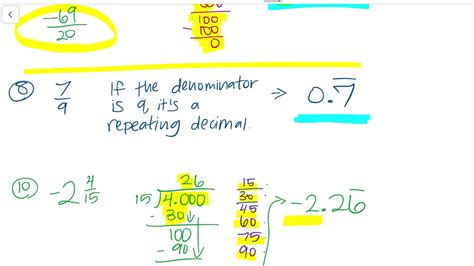 -69
20
100
-100
0
⑧ 7/9 If the denominator
is 9, it's a
repeating decimal.
→ 0.7̅
⑩ -2 4/15
26
15)4.000
-30
100
-90
15
30
45
60
75
90
-2.26̅